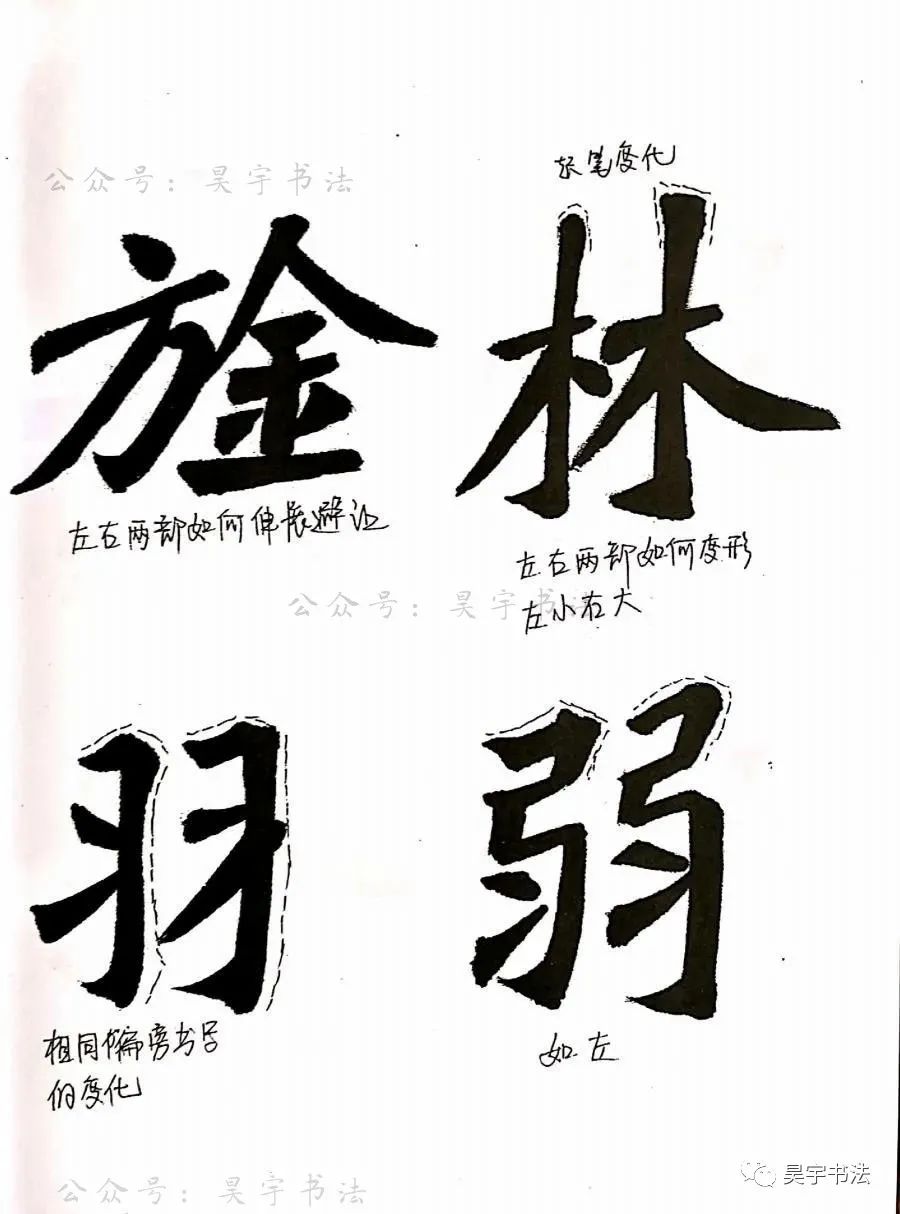 公众号：昊宇书法
起笔变化
林
左右两部如何伸展避让
左右两部如何变形
左小右大
公众号：昊宇书法
羽
弱
相同偏旁书写
的变化
如左
公众号：昊宇书法
昊宇书法